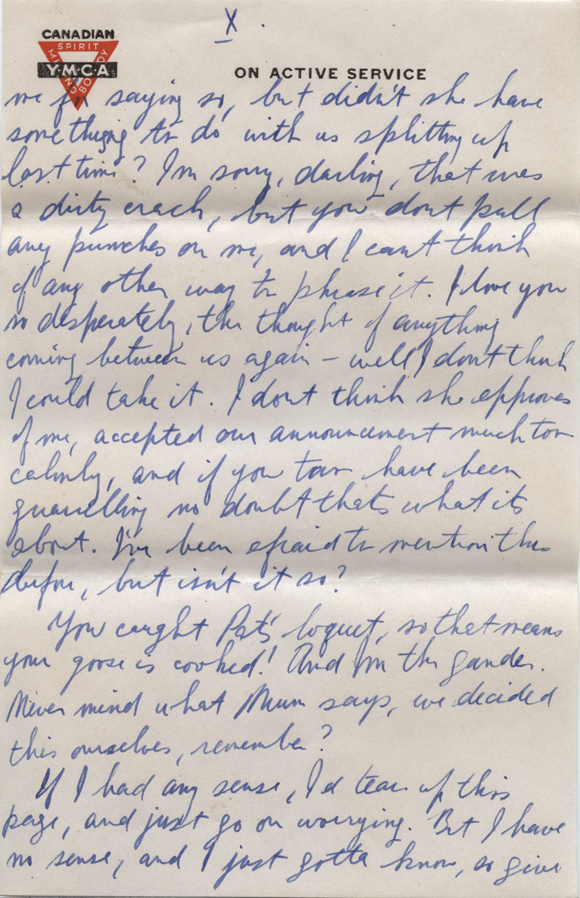 X
CANADIAN
SPIRIT
Y·M·C·A
MIND
BODY
ON ACTIVE SERVICE
me for saying so, but didn't she have
something to do with us splitting up
last time? I'm sorry, darling, that was
a dirty crack, but you dont pull
any punches on me, and I cant think
of any other way to phrase it. I love you
so desperately, the thought of anything
coming between us again – well I dont think
I could take it. I dont think she approves
of me, accepted our announcement much too
calmly, and if you two have been
quarrelling no doubt thats what its
about. I've been afraid to mention this
before, but isn't it so?
You caught Pat's boquet, so that means
your goose is cooked! And I'm the gander.
Never mind what Mum says, we decided
this ourselves, remember?
If I had any sense, I'd tear up this
page, and just go on worrying. But I have
no sense, and I just gotta know, so give